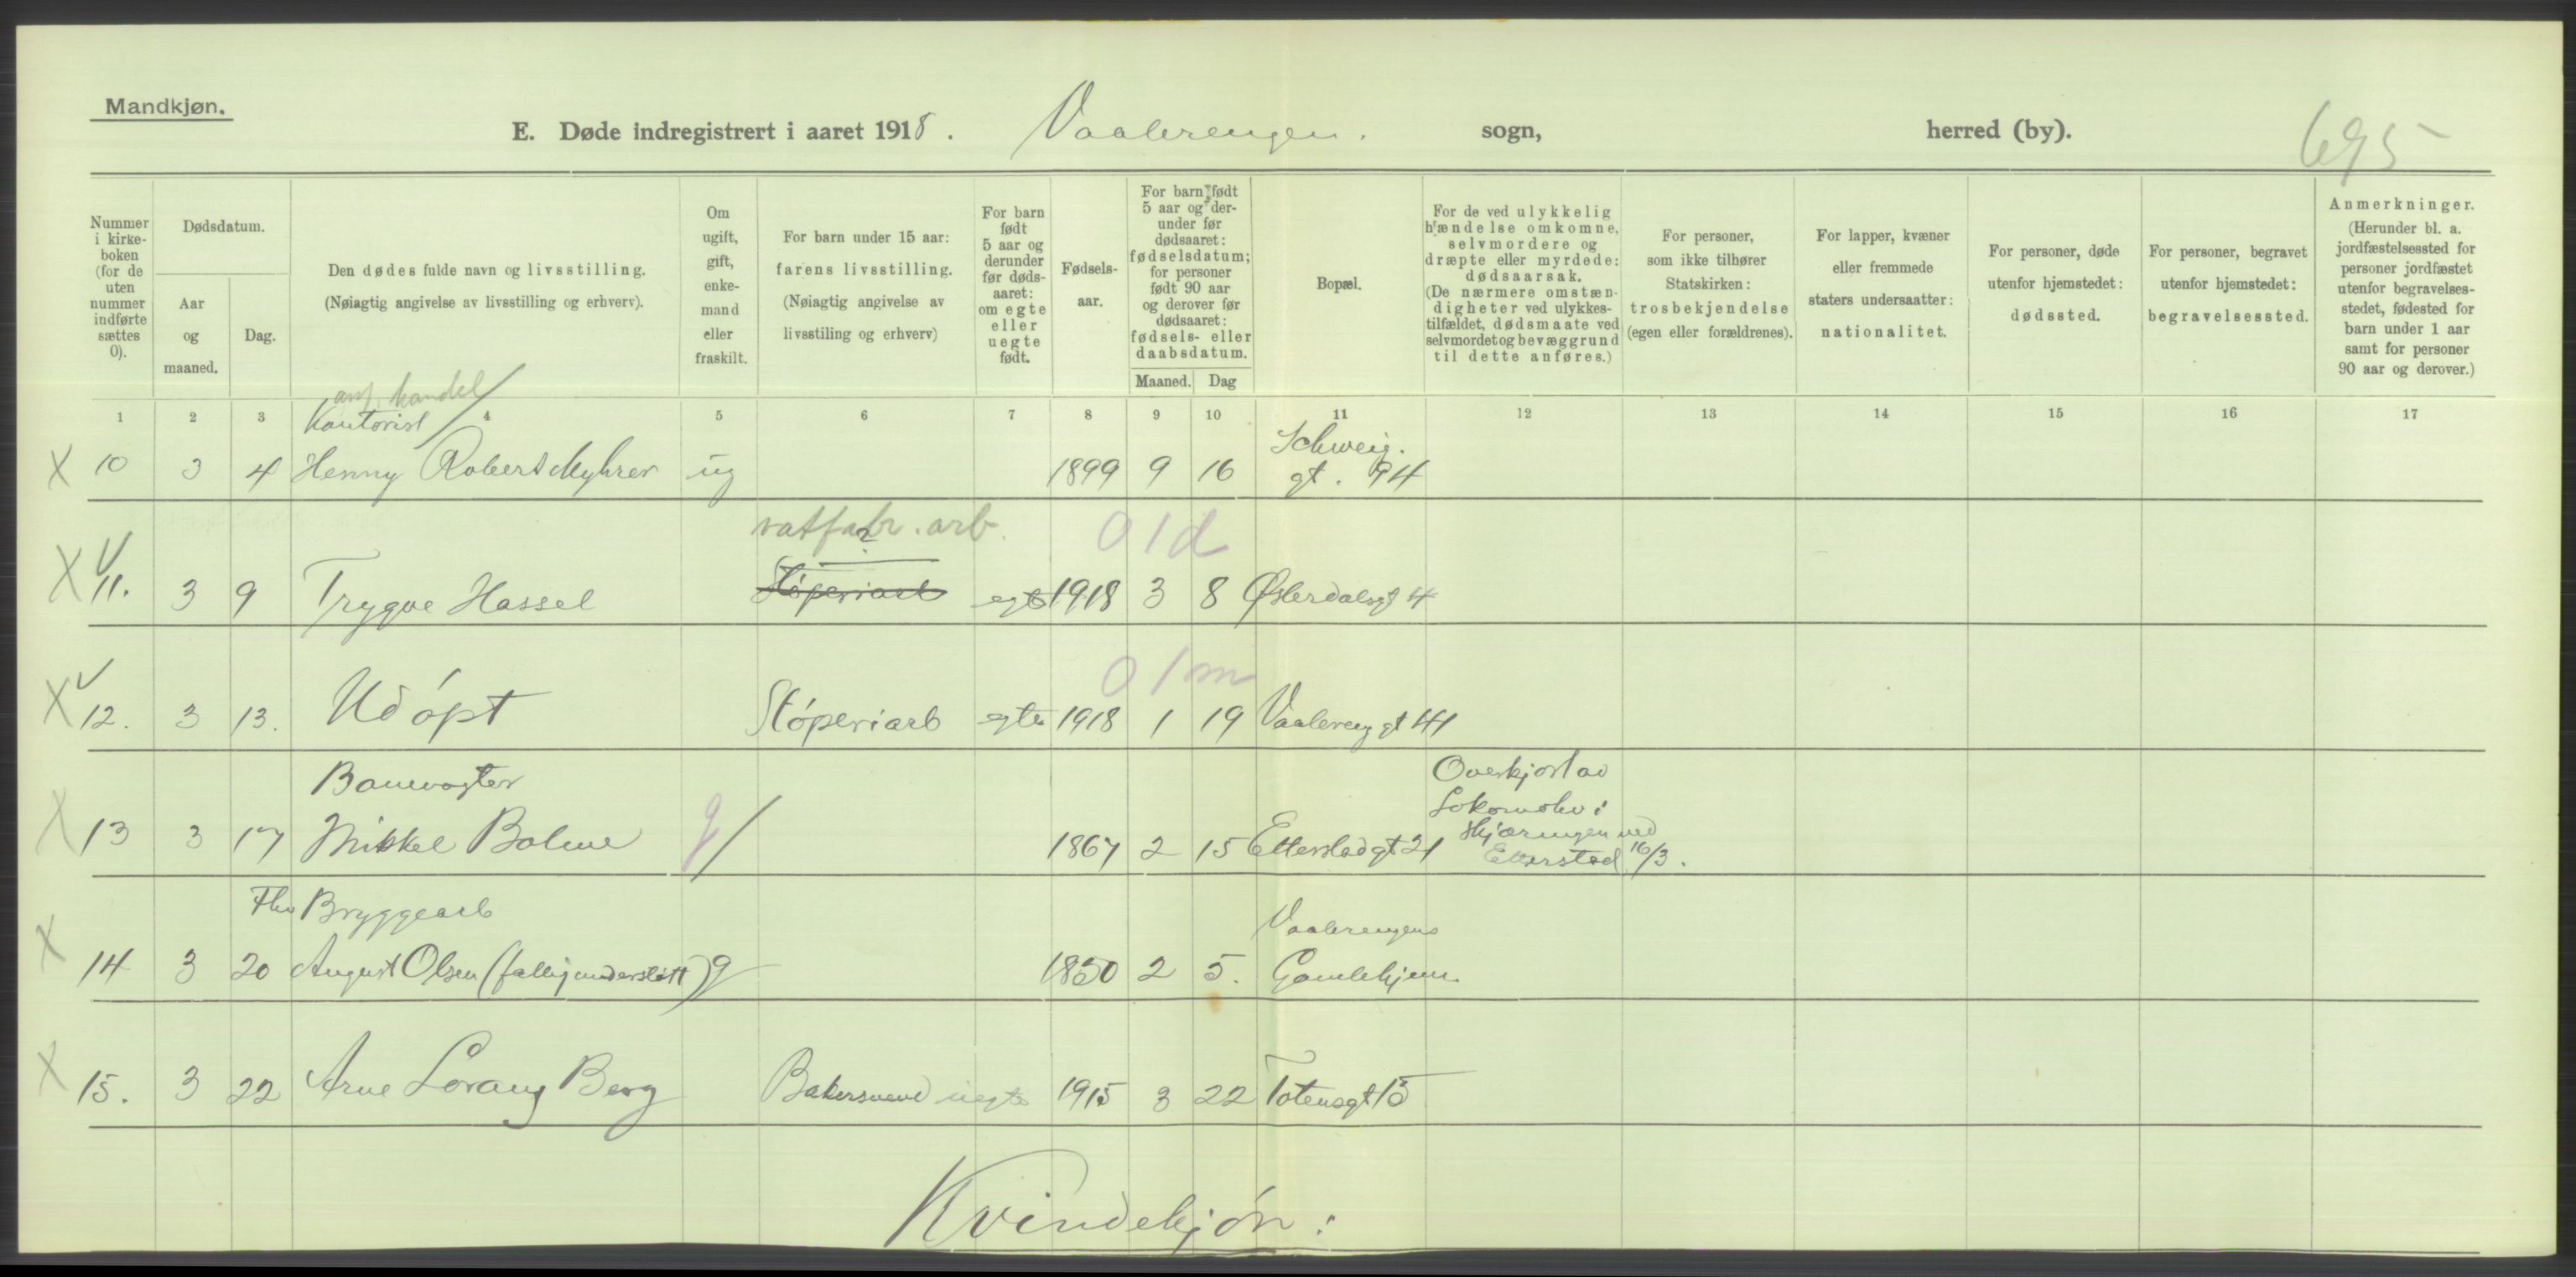 Mandkjøn.
E. Døde indregistrert i aaret 1918. Vaalerengen. sogn, herred (by). 695
Nummer i kirke-boken (for de uten nummer indførte sættes 0).
Dødsdatum.
Aar og maaned.
Dag.
Den dødes fulde navn og livsstilling.
(Nøiagtig angivelse av livsstilling og erhverv).
Om ugift, gift, enke-mand eller fraskilt.
For barn under 15 aar:
farens livsstilling.
(Nøiagtig angivelse av
livsstiling og erhverv)
For barn født 5 aar og derunder før døds-aaret: om egte eller uegte født.
Fødsels-aar.
For barn født 5 aar og der-under før dødsaaret: fødselsdatum; for personer født 90 aar og derover før dødsaaret: fødsels- eller daabsdatum.
Maaned. Dag
Bopæl.
For de ved ulykkelig hændelse omkomne, selvmordere og dræpte eller myrdede: dødsaarsak. (De nærmere omstæn-digheter ved ulykkes-tilfældet, dødsmaate ved selvmordet og bevæggrund til dette anføres.)
For personer, som ikke tilhører Statskirken: trosbekjendelse (egen eller forældrenes).
For lapper, kvæner eller fremmede staters undersaatter: nationalitet.
For personer, døde utenfor hjemstedet: dødssted.
For personer, begravet utenfor hjemstedet: begravelsessted.
Anmerkninger. (Herunder bl. a. jordfæstelsessted for personer jordfæstet utenfor begravelses-stedet, fødested for barn under 1 aar samt for personer 90 aar og derover.)
1 2 3 4 5 6 7 8 9 10 11 12 13 14 15 16 17
handel
Kontorist
Schweig.
X 10 3 4 Henny Robert Myhrer ug 1899 9 16 gt. 94
vatfabr. arb. 01d
X V 11. 3 9 Trygve Hassel Støperiarb egte 1918 3 8 Østerdalsgt 4
01m
X V 12. 3 13. Udøpt Støperiarb egte 1918 1 19 Vaalereng gt 41
Banevogter
Overkjørt av
Lokomotiv i
Skjæringen ved
X 13 3 17 Mikkel Bolme g 1867 2 15 Etterstadgt 21 Etterstad 16/3.
Fhv Bryggearb
Vaalerengens
X 14 3 20 August Olsen (fattigunderstøtt) g 1850 2 5. Gamlehjem.
X 15. 3 22 Arne Lorang Berg Bakersvend uegte 1915 3 22 Totensgt 15
Kvindekjøn: